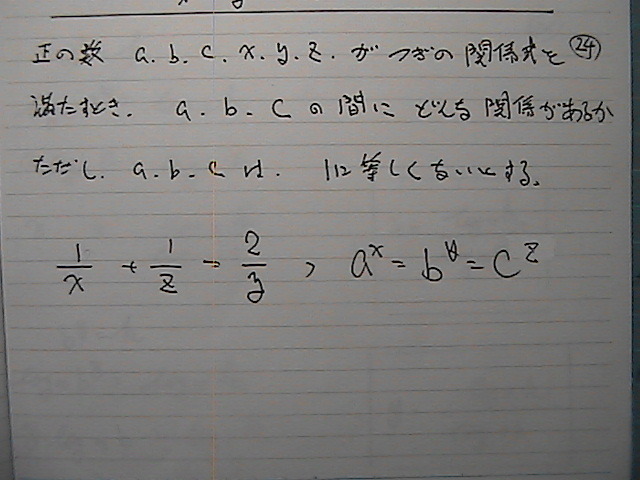 正の数 a.b.c.x.y.z.がつぎの関係式を ㉔
満たすとき. a.b.cの間にどんな関係があるか
ただし. a.b.cは. 1に等しくないとする。
1/x + 1/z = 2/y , a^x = b^y = c^z